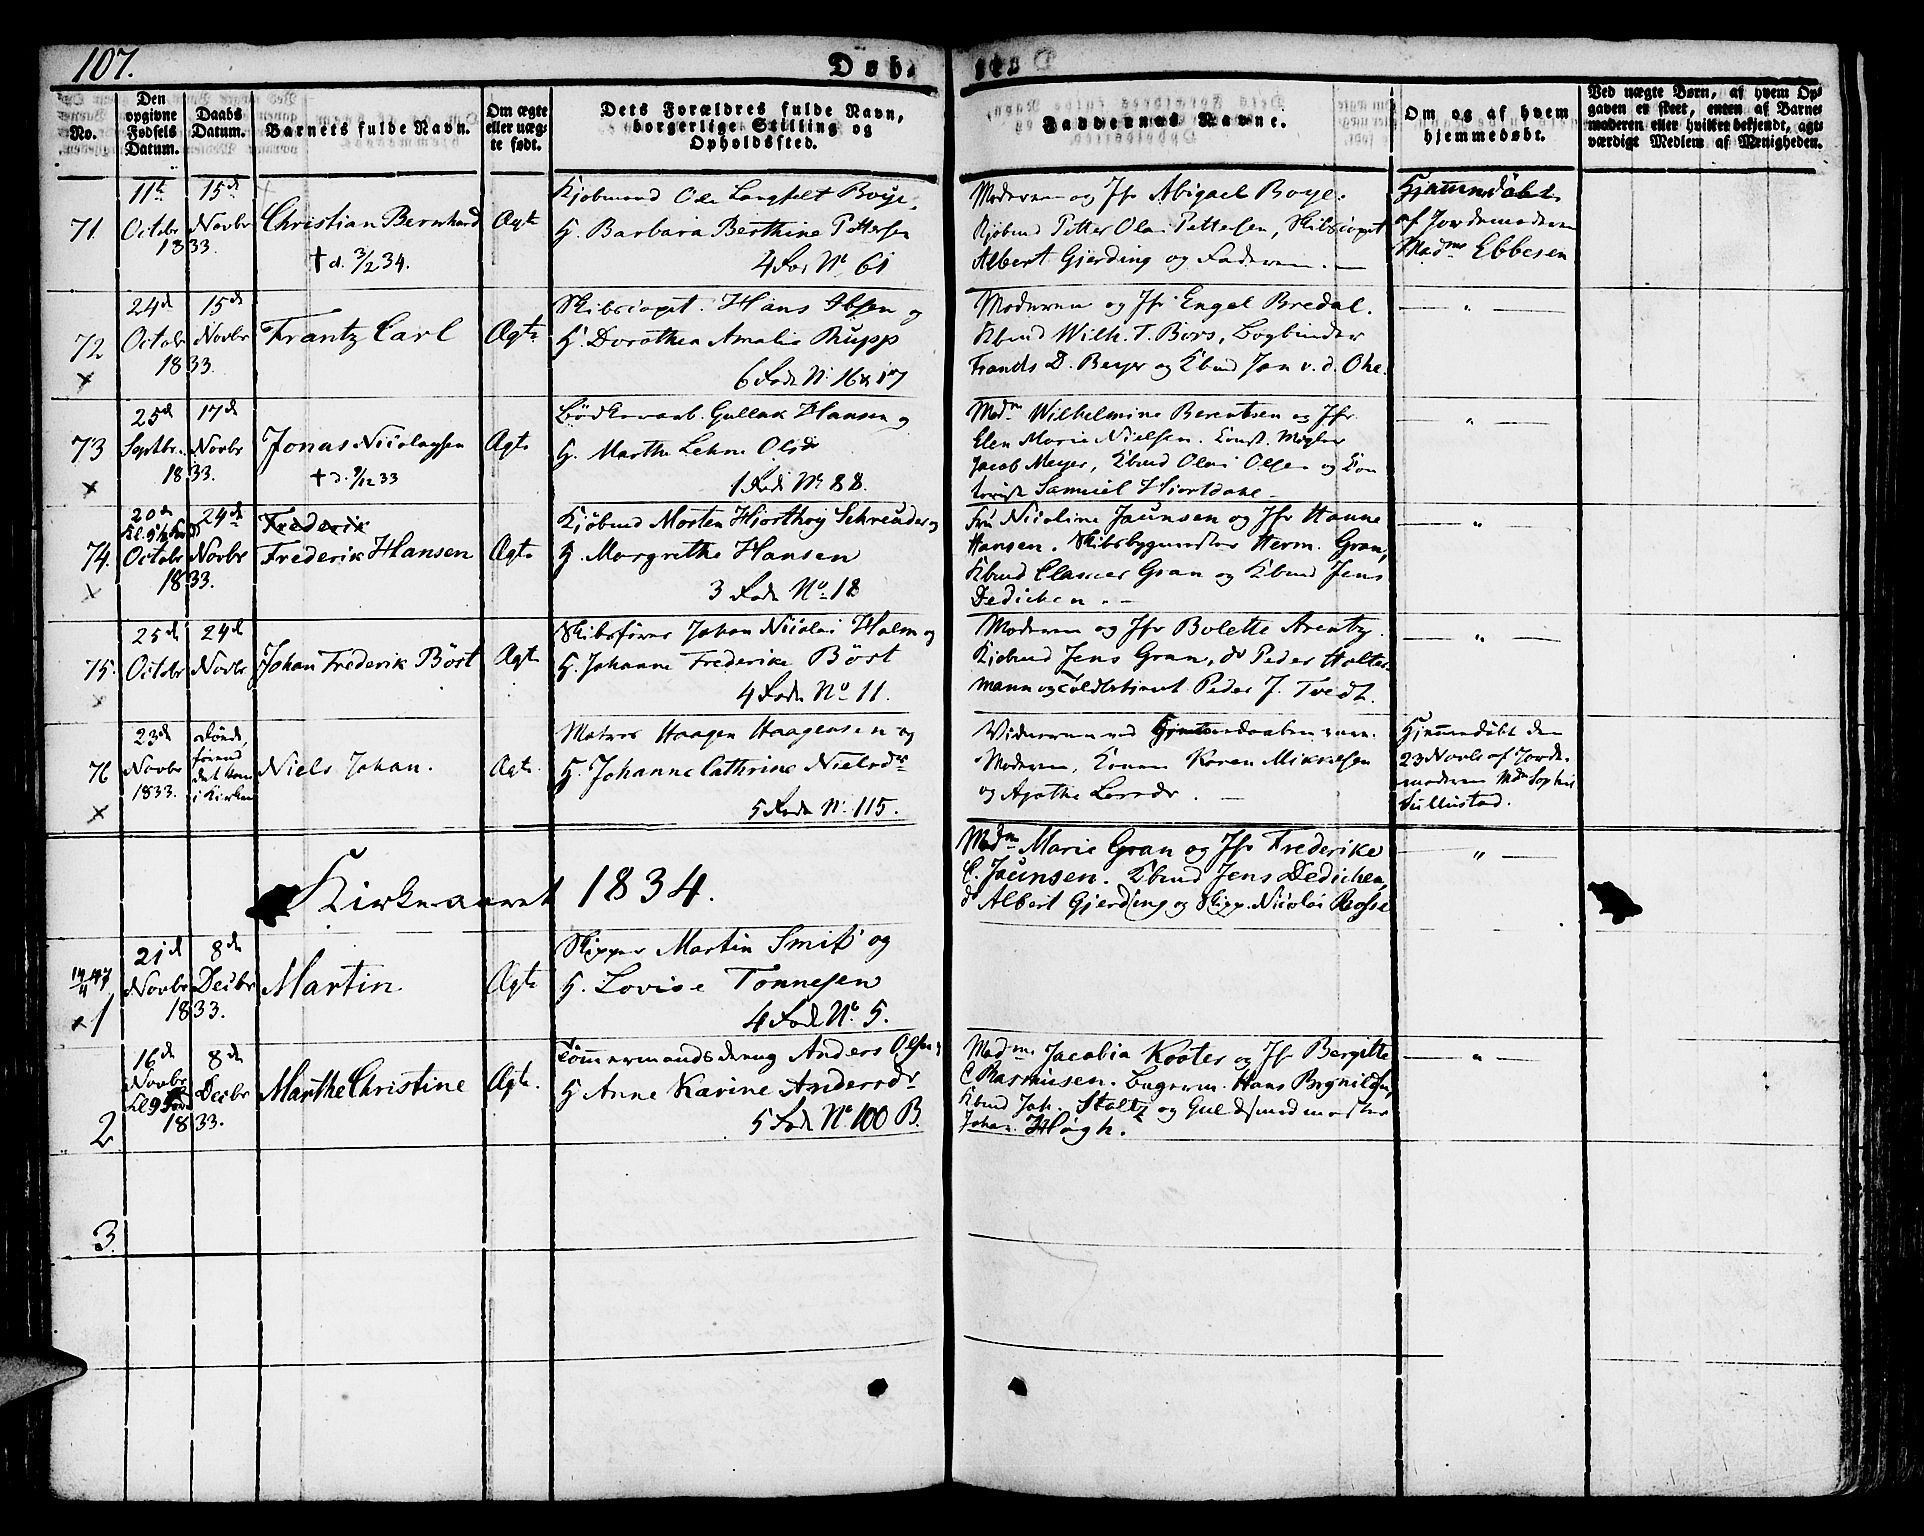 107.
Døbte
No.
Den opgivne Fødsels Datum.
Daabs Datum.
Barnets fulde Navn.
Om ægte eller uægte født.
Dets Forældres fulde Navn, borgerlige Stilling og Opholdssted.
Faddernes Navne.
Om og af hvem hjemmedøbt.
Ved uægte Børn, af hvem Opgaven er skeet, enten af Barnemoderen eller hvilket bekjendt, agtværdigt Medlem af Menigheden.
71.
11te Octobr 1833.
15de Novbr
Christian Bernhard
† d. 3/2 34.
Ægte
Kjøbmand Ole Langfelt Boye,
H. Barbara Berthine Pettersen
4 Fod No. 61
Moderen og Jfr Abigael Boye.
Kjbmd Petter Olai Pettersen, Skibscapt
Albert Gjerding og Faderen. —
Hjemmedøbt
af Jordemoderen
Madme Ebbesen
72
24de Octobr 1833.
15de Novbr
Frantz Carl
Ægte
Skibscapt. Hans Ibsen og
H. Dorothea Amalia Rupp
6 Fode N. 16 & 17
Moderen og Jfr Engel Bredal.
Kbmd Wilh. T. Bors, Bogbinder
Frands D. Beyer og Kbmd Jan v. d. Ohe.
73
25de Septbr. 1833.
17de Novbr
Jonas Nicolaysen
† d. 9/12 33
Ægte
Bødkerarb. Gullak Hansen og
H. Marthe Lehne Olsdr
1 Fode No 88.
Madm Wilhelmine Berentsen og Jfr
Elen Marie Nielsen. Const. Mægler
Jacob Meyer, Kbmd Olai Olsen og Con
torist Samuel Hjortdahl —
74.
20de Octobr 1833.
24de Novbr
Frederik
Frederik Hansen
Ægte
Kjøbmd Morten Hjorthøy Schreuder og
H. Margrethe Hansen
3 Fode No 18
Fru Nicoline Jaunsen og Jfr Hanne
Hansen. Skibsbygmester Herm. Gran,
Kbmd Clamer Gran og Kbmd Jens
Dedichen. —
75.
25de Octobr
24de Novbr
Johan Frederik Böst
Ægte
Skibsfører Johan Nicolai Holm og
H. Johanne Frederike Böst
4 Fode No 11.
Moderen og Jfr Bolette Arentz.
Kjøbmd Jens Gran, do Peder Holter
mann og Toldbetient Peder J. Tvedt.
76
23de Novbr 1833.
Døde,
førend
det kom
i Kirken
Niels Johan.
Ægte
Matros Haagen Haagensen og
H. Johanne Cathrine Nielsdr
5 Fode N. 115.
Vidnerne ved Hjemmedaaben vare.
Moderen, Konen Karen Mikkelsen
og Agathe Larsdr. —
Hjemmedøbt den
23 Novbr af Jorde-
moderen Mdm Sophie
Kirkeaaret 1834.
Madm Marie Gran og Jfr Frederike
C. Jaunsen. Kbmd Jens Dedichen,
do Albert Gjerding og Skipp. Nicolai Rosse
1
21de Novbr 1833.
8de Decbr
Martin.
Ægte
Skipper Martin Smiß og
H. Lovise Tønnesen
4 Fode No. 5.
2
16de Novbr 1833.
8de Decbr
Marthe Christine
Ægte.
Tømmermandsdreng Anders Olsen,
H. Anne Karine Andersdr
5 Fode No. 100 B.
Madme Jacobia Kooter og Jfr Bergitte
C Rasmusen. Bagerm. Hans Brynildsen,
Kbmd Joh. Stoltz og Guldsmedmester
Johan Høgh.
3.